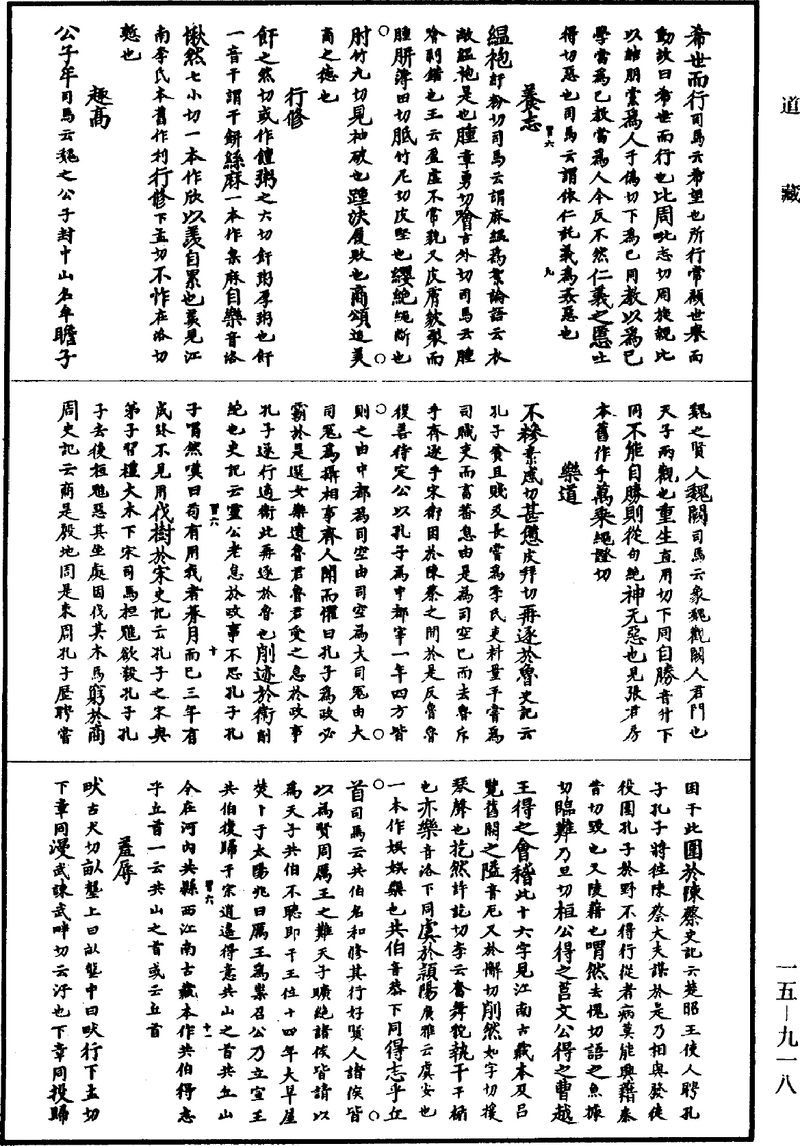 道藏
希世而行司馬云希望也所行常顧世譽而
動故曰希世而行也比周毗志切周旋親比
以結朋黨爲人于偽切下爲已同教以爲已
學當爲已教當爲人今反不然仁義之慝吐
得切惡也司馬云謂依仁託義爲姦惡也
養志
縕袍紆粉切司馬云謂麻縕爲絮論語云衣
敝縕袍是也腫章勇切噲古外切司馬云腫
噲剝錯也王云盈虛不常貌又皮膚皴裂而
腫胼薄田切胝竹尼切皮堅也纓絶繩斷也
肘竹九切見袖破也踵決履敗也商頌追美
商之德也
行修
飦之然切或作饘粥之六切飦粥厚粥也飦
一音干謂干餅絲麻一本作枲麻自樂音洛
愀然七小切一本作欣以羨自累也羨見江
南李氏本舊作利行修下孟切不怍在洛切
慙也
趣高
公子牟司馬云魏之公子封中山名牟瞻子
魏之賢人魏闕司馬云象魏觀闕人君門也
天子兩觀也重生直用切下同自勝音升下
同不能自勝則從句絶神无惡也見張君房
本舊作乎萬乘繩證切
樂道
不糝素感切甚憊皮拜切再逐於魯史記云
孔子貧且賤及長嘗爲季氏史料量平嘗爲
司職吏而畜蕃息由是爲司空已而去魯斥
乎齊逐乎宋衛困於陳蔡之間於是反魯魯
復善待定公以孔子爲中都宰一年四方皆
則之由中都爲司空由司空爲大司寇由大
司寇爲攝相事齊人聞而懼曰孔子爲政必
霸於是選女樂遺魯君魯君受之怠於政事
孔子遂行適衛此再逐於魯也削迹於衛削
絶也史記云靈公老怠於政事不忍孔子孔
子喟然嘆曰苟有用我者朞月而已三年有
成終不見用伐樹於宋史記云孔子之宋與
弟子習禮大木下宋司馬桓魋欲殺孔子孔
子去後桓魋惡其坐處因伐其木焉窮於商
周史記云商是殷地周是東周孔子歷聘嘗
困于此圍於陳蔡史記云楚昭王使人聘孔
子孔子將往陳蔡大夫謀於是乃相與發徒
役圍孔子於野不得行從者病莫能興藉秦
昔切毀也又陵藉也喟然去愧切語之魚據
切臨難乃旦切桓公得之莒文公得之曹越
王得之會稽此十六字見江南古藏本及呂
覽舊闕之隘音厄又於懈切削然如字切援
琴聲也扢然許訖切李云奮舞貌執干干楯
也亦樂音洛下同虞於潁陽廣雅云虞安也
一本作娛娛樂也共伯音恭下同得志乎丘
首司馬云共伯名和修其行好賢人諸侯皆
以爲賢周厲王之難天子曠絶諸侯皆請以
爲天子共伯不聽即干王位十四年大旱屋
焚卜于太陽兆曰厲王爲祟召公乃立宣王
共伯復歸于宗逍遙得意共山之首共丘山
今在河內共縣西江南古藏本作共伯得志
乎丘首一云共山之首或云丘首
羞辱
畎古犬切畝壟上曰畝壟中曰畎行下孟切
下章同漫武諫武畔切云汙也下章同投歸
一五—九一八